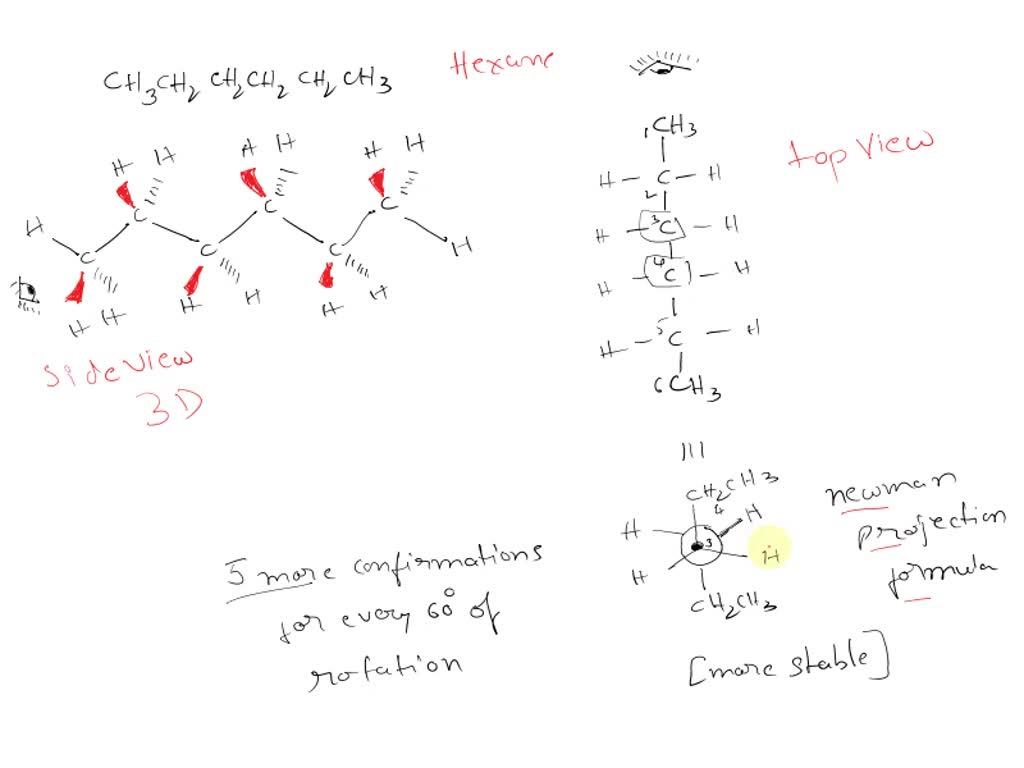 CH3CH2 CH2CH2 CH2 CH3
Hexane
H H H H H H
H C C C C C C H
H H H H H H
Side View
3D
1CH3
H - C - H
2
H - 3C - H
H - 4C - H
H - 5C - H
6CH3
top View
CH2CH3
4
H H
3
H H
CH2CH3
[more stable]
newman
projection
formula
5 more confirmations
for every 60° of
rotation